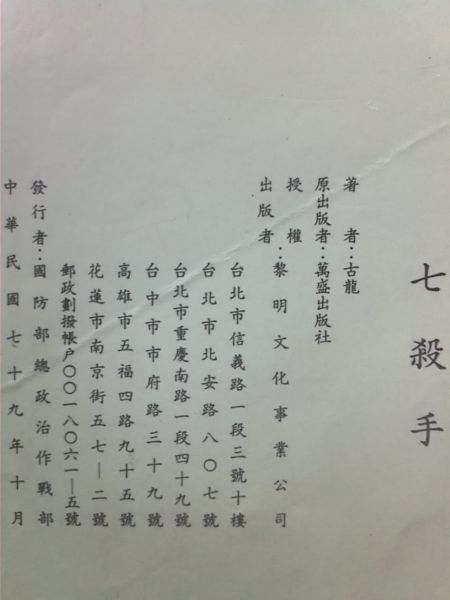 七殺手
著者：古龍
原出版者：萬盛出版社
授權
出版者：黎明文化事業公司
台北市信義路一段三號十樓
台北市北安路八〇七號
台北市重慶南路一段四十九號
台中市市府路三十九號
高雄市五福四路九十五號
花蓮市南京街五七—二號
郵政劃撥帳戶〇〇一八〇六一—五號
發行者：國防部總政治作戰部
中華民國七十九年十月